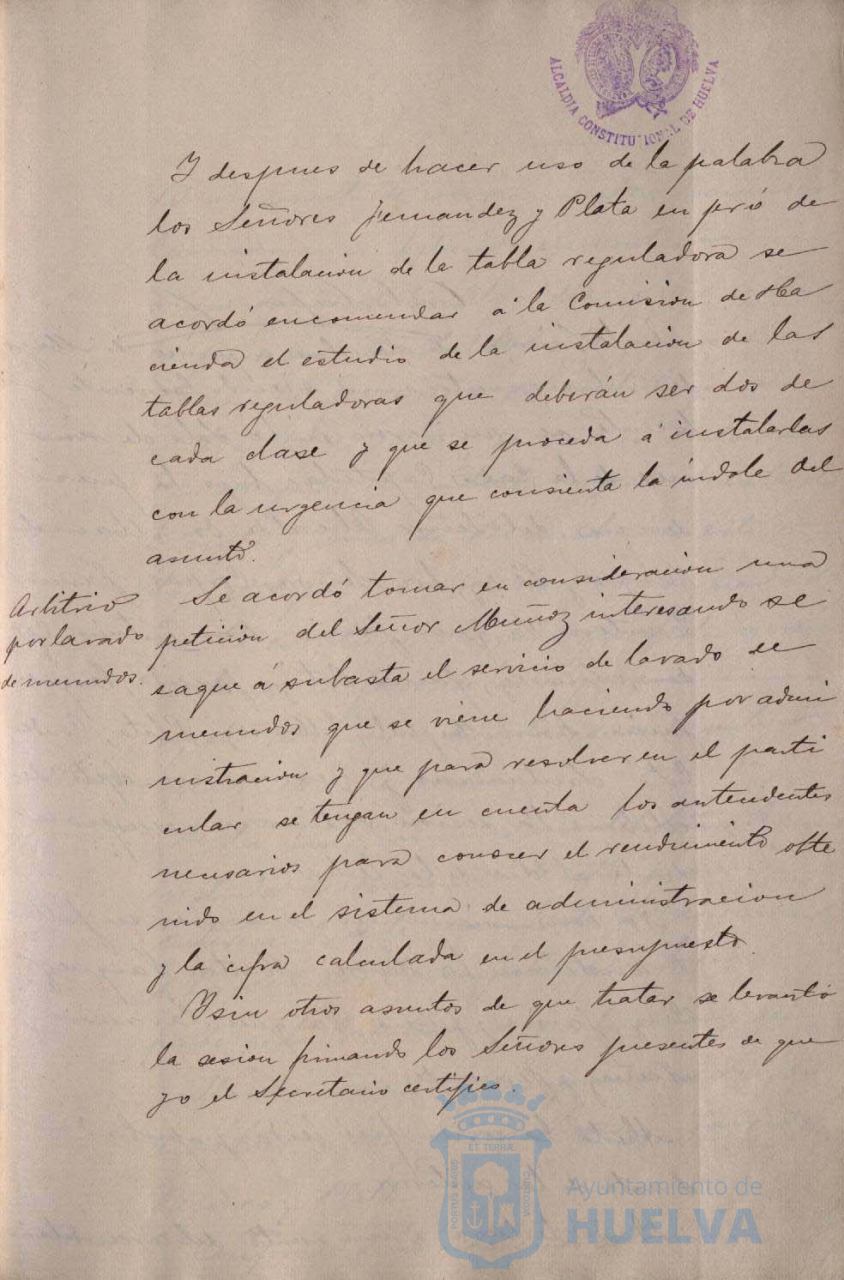 ALCALDIA CONSTITUCIONAL DE HUELVA
Y despues de hacer uso de la palabra
los Señores Fernandez y Plata en pró de
la instalacion de la tabla reguladora se
acordó encomendar á la Comision de Ha
cienda el estudio de la instalacion de las
tablas reguladoras que deberán ser dos de
cada clase y que se proceda á instalarlas
con la urgencia que consienta la indole del
asunto.
Arbitrio
por lavado
de menudos.
Se acordó tomar en consideracion una
peticion del Señor Muñoz interesando se
saque á subasta el servicio de lavado de
menudos que se viene haciendo por admi
nistracion y que para resolver en el parti
cular se tengan en cuenta los antecedentes
necesarios para conocer el rendimiento obte
nido en el sistema de administracion
y la cifra calculada en el presupuesto.
Y sin otros asuntos de que tratar se levantó
la sesion firmando los Señores presentes de que
yo el Secretario certifico.
ET TERRÆ
PORTUS MARIS
CUSTODIA
Ayuntamiento de
HUELVA